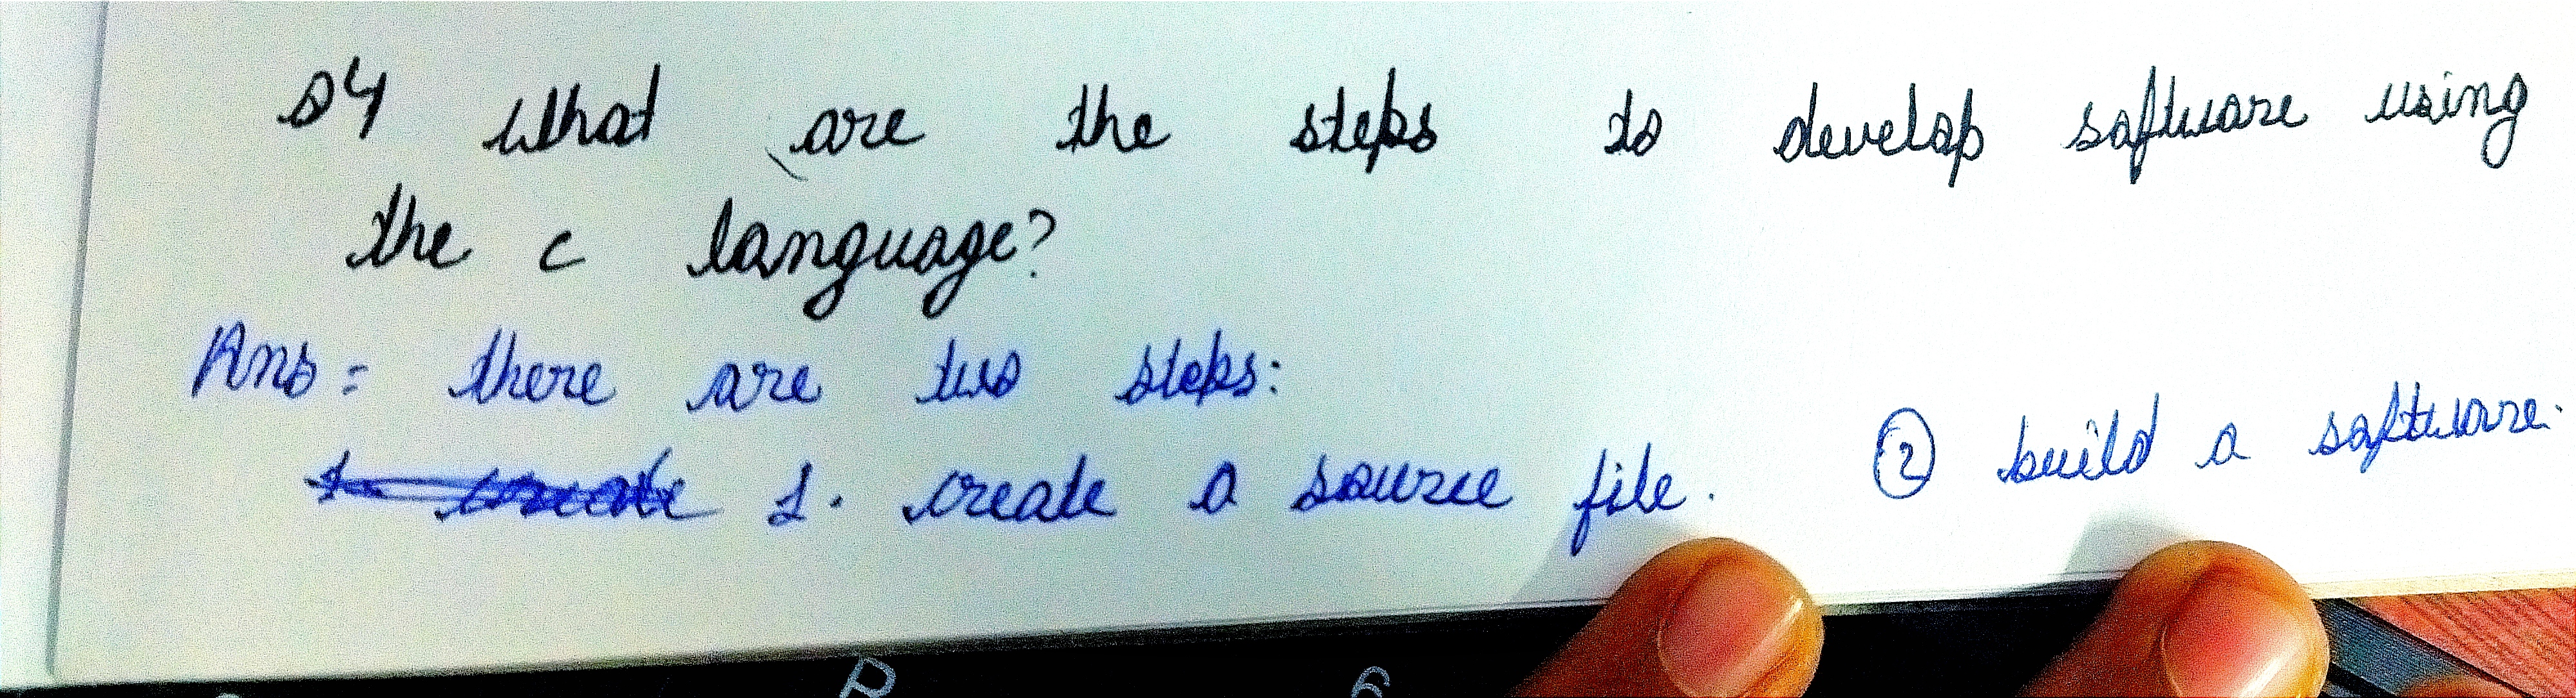 Q4 What are the steps to develop software using
the c language?
Ans = there are two steps:
1. create a source file. ② build a software.
P